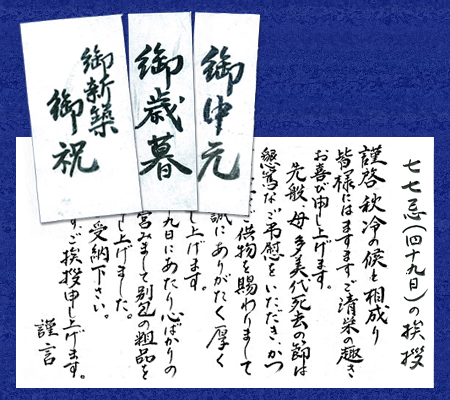 御中元
御歳暮
御新築
御祝
七七忌(四十九日)の挨拶
謹啓秋冷の候と相成り
皆様にはますますご清栄の趣き
お喜び申し上げます。
先般、母多美代死去の節は
懇篤なご弔慰をいただき、かつ
ご供物を賜わりまして
誠にありがたく厚く
し上げます。
九日にあたり心ばかりの
営みまして別包の粗品を
し上げました。
受納下さい。
、ご挨拶申し上げます。
謹言